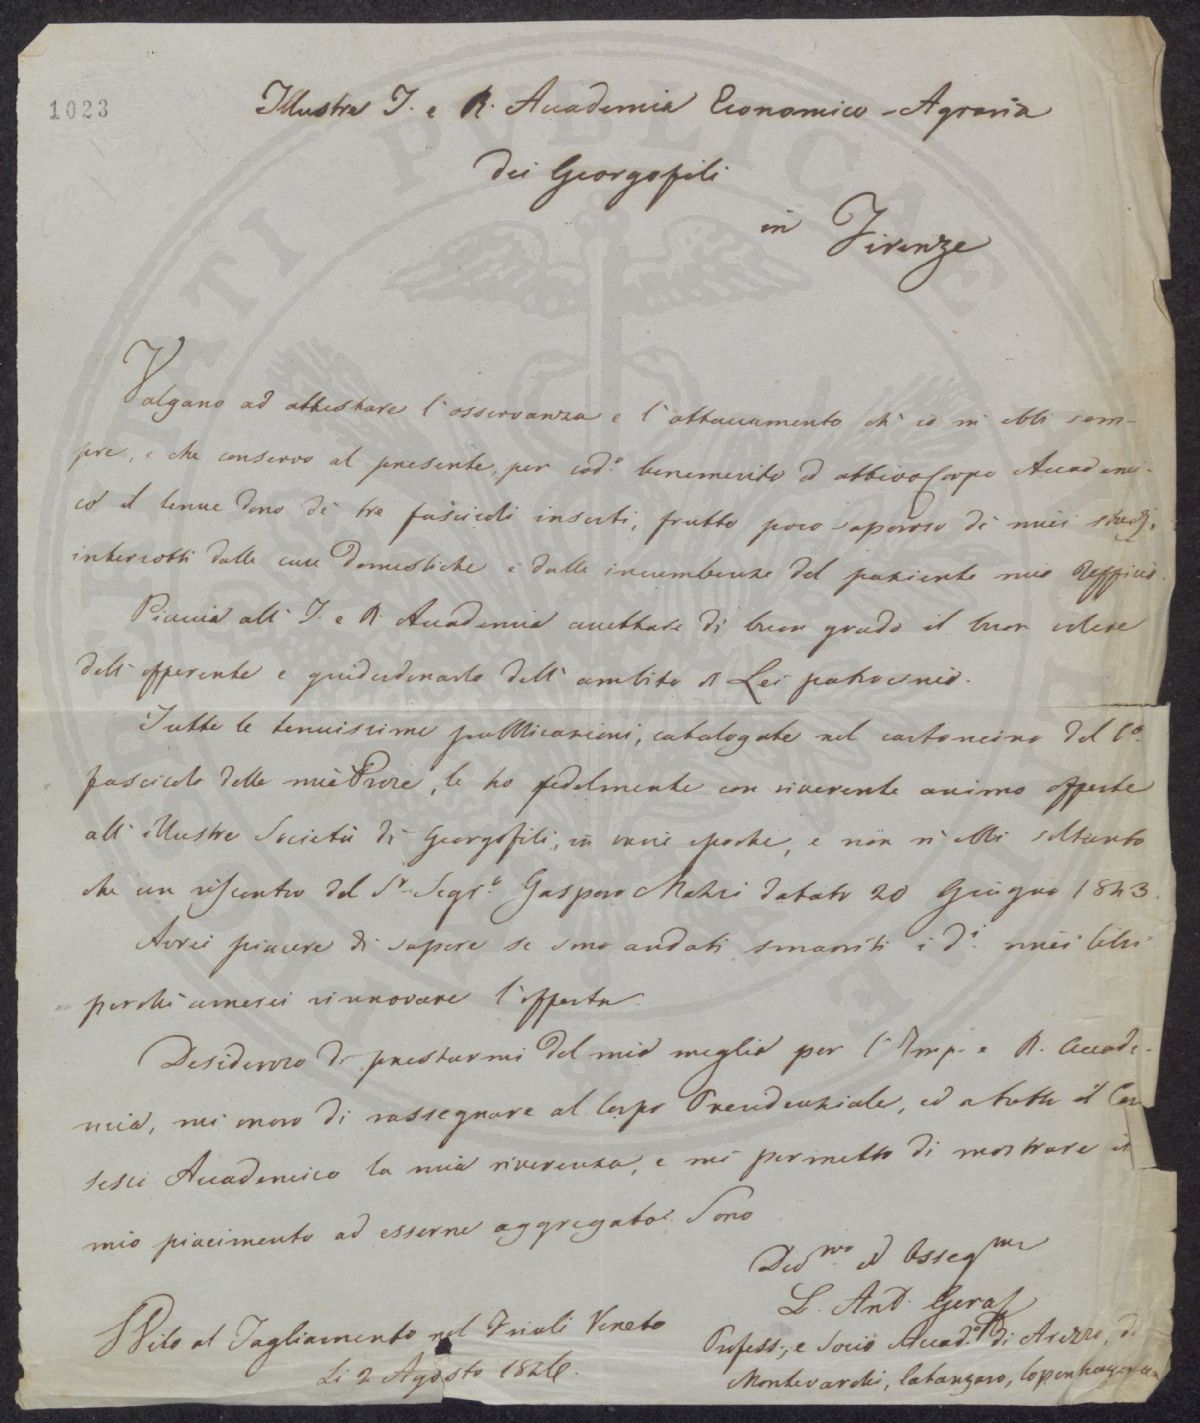 1023
Illustre I. e R. Accademia Economico-Agraria
dei Georgofili
in Firenze
Valgano ad attestare l'osservanza e l'attaccamento ch'io m'ebbi sem-
pre, e che conservo al presente, per cod.o benemerito ed Corpo Accademi-
co il tenue dono di tre fascicoli inserti, frutto poco saporoso di miei studj,
interrotti dalle cure domestiche e dalle incumbenze del paziente mio Uffizio.
Piaccia all'I. e R. Accademia accettare di buon grado il buon volere
dell'offerente e guiderdonarlo dell'ambito di Lei patrocinio.
Tutte le tenuissime pubblicazioni, catalogate nel cartoncino del
fascicolo delle mie Prose, le ho fedelmente con riverente animo offerte
all'illustre Società di Georgofili, in varie epoche, e non n'ebbi soltanto
che un riscontro del Sr. Segr.o Gaspero Mazzi datato 20 Giugno 1843.
Avrei piacere di sapere se sono andati smarriti i d.i miei libri
perchè amerei rinnovare l'offerta.
Desideroso di prestarmi del mio meglio per l'Imp. e R. Accade-
mia, mi onoro di rassegnare al Corpo Presidenziale, ed a tutto il Con
sesso Accademico la mia riverenza, e mi permetto di mostrare il
mio piacimento ad esserne aggregato. Sono
Dev.mo ed Osseq.mo
L. And. Geraf
Profess., e Socio Accad. di Arezzo, di
Montevarchi, Catanzaro, Copenhagen
S Vito al Tagliamento nel Friuli Veneto
Li 2 Agosto 1846.
PUBLICAE